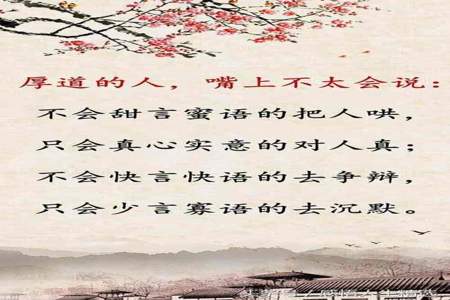 厚道的人，嘴上不太会说：
不会甜言蜜语的把人哄，
只会真心实意的对人真；
不会快言快语的去争辩，
只会少言寡语的去沉默。